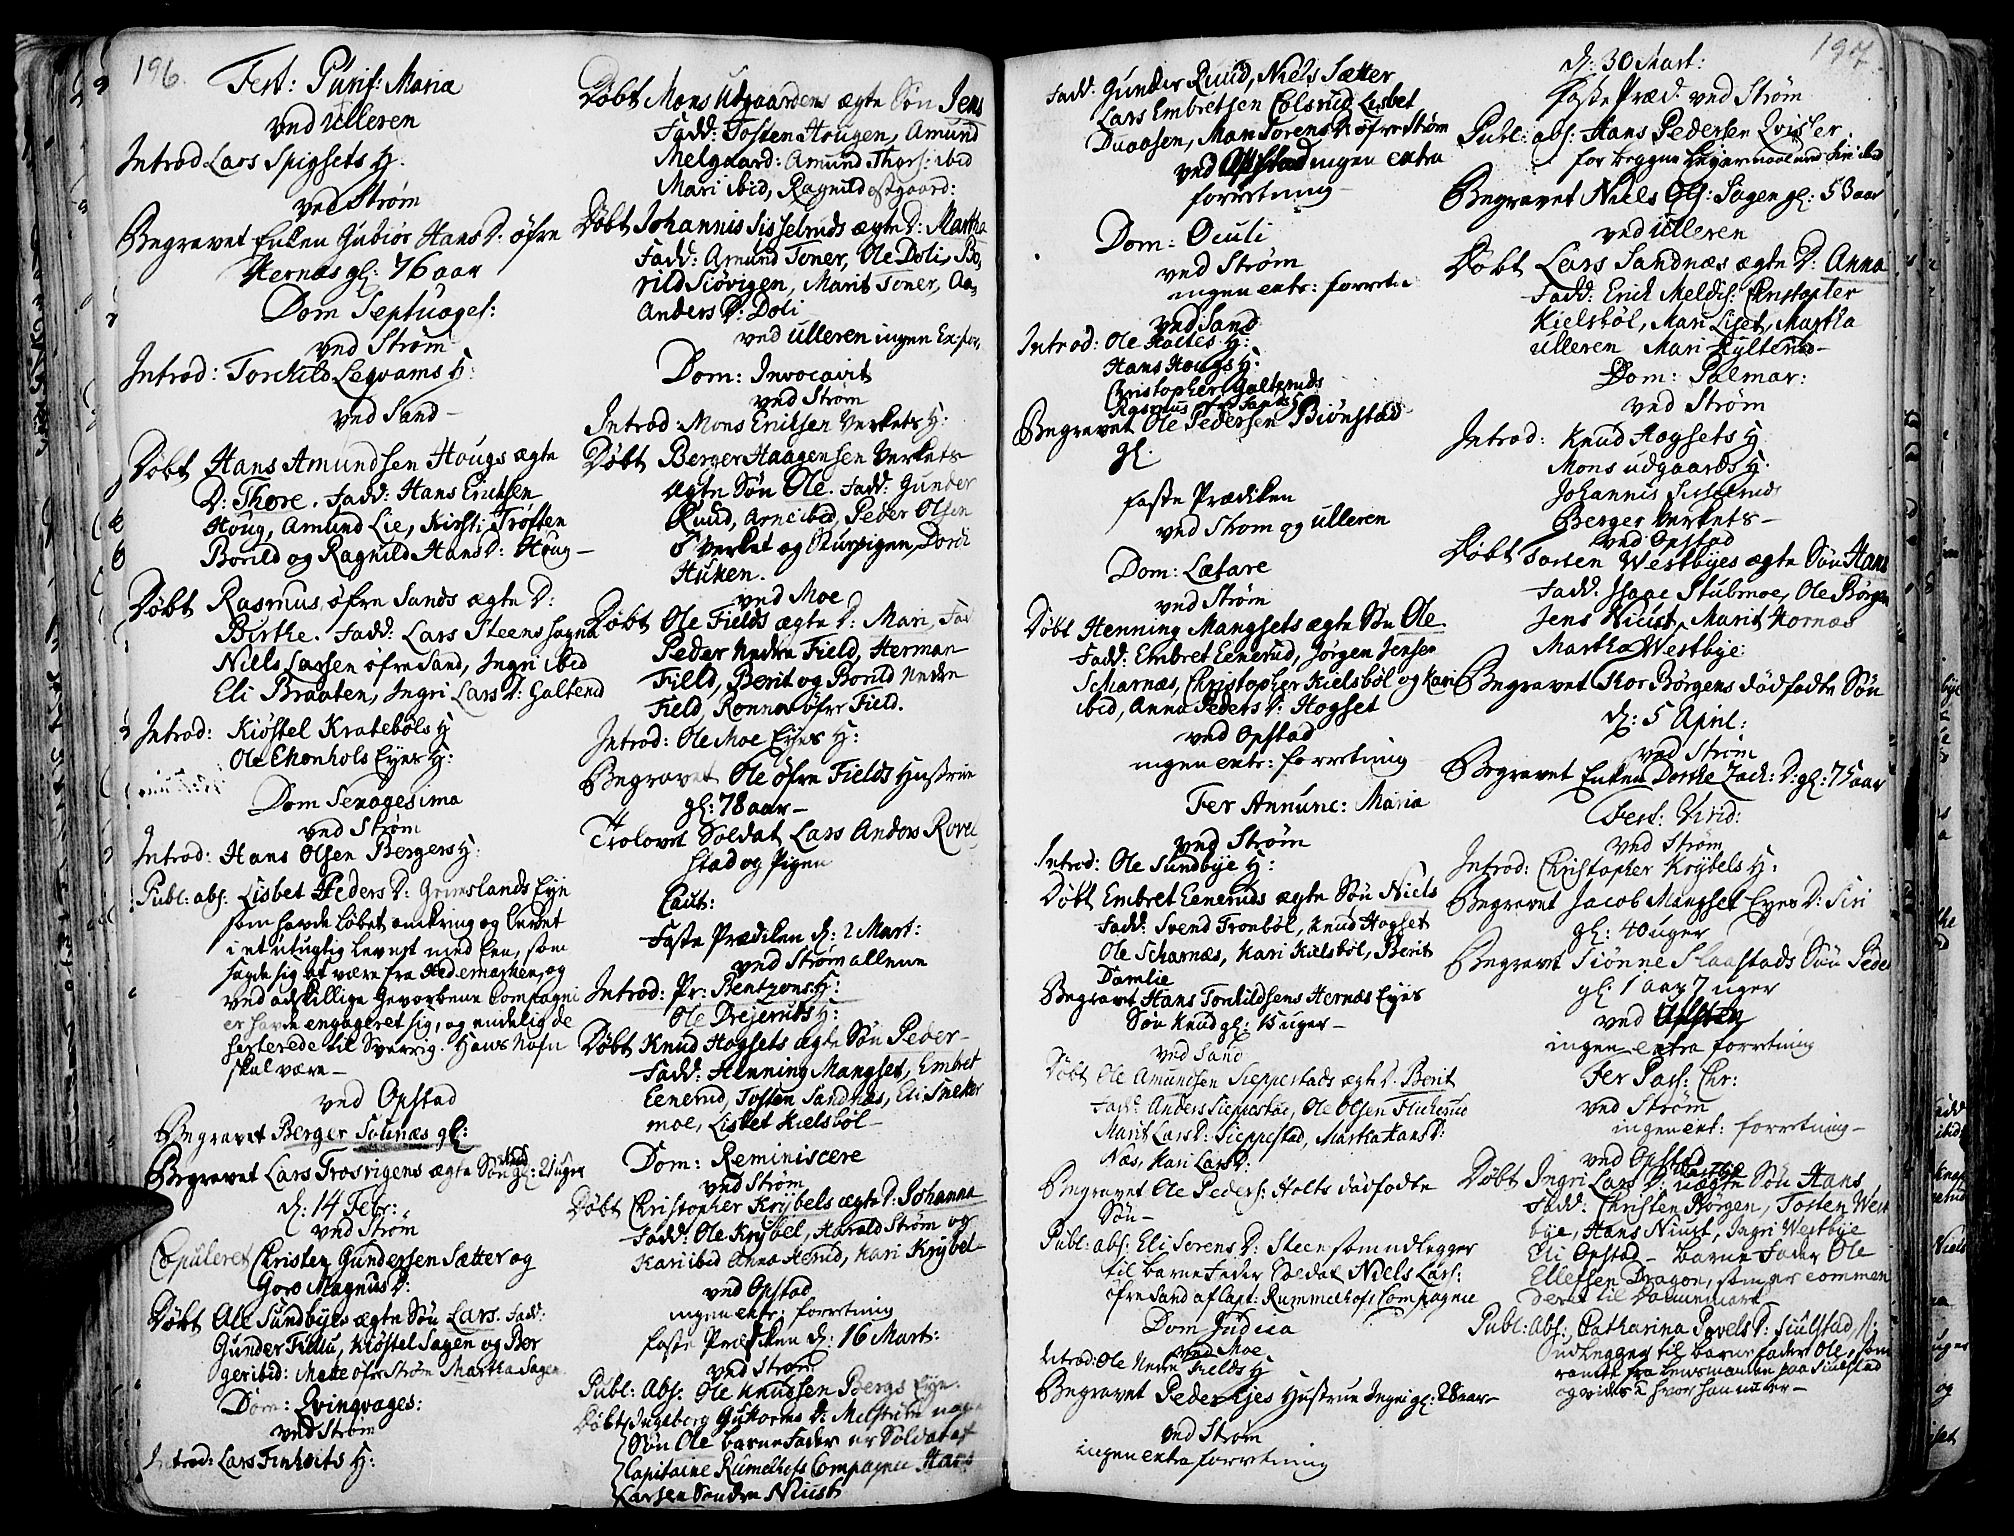 196.
Fest: Purif: Mariæ
ved Ulleren
Introd Lars Spigsets H:
ved Strøm
Begravet Enken Gubiør Hans D: øfre
Hernæs gl: 76 aar
Dom Septuages:
ved Strøm
Introd: Torkild Legvams H:
ved Sand
Døbt Hans Amundsen Hougs ægte
D: Thore. Fadd: Hans Erichsen
Houg, Amund Lie, Kirsti Trøften
Borild og Ragnild Hans D: Houg
Døbt Rasmus øfre Sands ægte D:
Birthe. Fadd: Lars Steens Sogna
Niels Larsen øfre Sand, Ingri ibid
Eli Braaten, Ingri Lars D: Galterud
Introd: Kiøstel Kratebøls H
Ole Ekonhols Eyes H:
Dom Sexagesima
ved Strøm
Introd: Hans Olsen Bergers H:
Publ: abs: Lisbet Peders D: Grinslands Eye
som havde løbet omkring og levet
i et utugtig levnet med een, som
sagde sig at være fra Hedemarken, og
ved adskillige Gevorbene Compagni
er havde engageret sig, og endelig de
serterede til Sverrig. Hans Nafn
skal være
ved Opstad
Begravet Berger Solnæs gl:
Begravet Lars Trosvigens ægte Søn gl: 2 uger
d: 14 Febr:
ved Strøm
Copuleret Christen Gundersen Sætter og
Goro Magnus D:
Døbt Ole Sundbyes ægte Søn Lars. Fadd:
Gunder Finu, Kiøstel Sagen og Ber
ger ibid: Mette øfre Strøm Martha Sagen
Dom: Qvinqvages:
ved Strøm
Introd: Lars Finholts H:
Døbt Mons Udgaardens ægte Søn Jens
Fadd: Tosten Hougen, Amund
Melgaard: Amund Thors: ibid
Mari ibid, Ragnild Østgaard:
Døbt Johannis Sisselruds ægte D: Martha
Fadd: Amund Toner, Ole Doli, Bo,
rild Siøvigen, Marit Toner, Aa,
Anders D: Doli
ved Ulleren ingen Ex for,
Dom: Invocavit
ved Strøm
Introd: Mons Erichsen Verkets H:
Døbt Berger Haagensen Verkets
ægte Søn Ole. Fadd: Gunder
Ruud, Arne ibid, Peder Olsen
S Verket og Sturpigen Dordi
Huken.
ved Moe
Døbt Ole Fields ægte D: Mari, Fad
Peder Nedre Field, Herman
Field, Berit og Borild Nedre
Field, Ronna øfre Field.
Introd: Ole Moe Eyes H:
Begravet Ole øfre Fields Hustrue
gl: 78 aar
Trolovet Soldat Lars Anders Rovel
stad og Pigen
Caut:
Faste Prædiken d: 2 Mart:
ved Strøm allene
Introd: Pr: Bentzons H:
Ole Drejeruds H:
Døbt Knud Hogsets ægte Søn Peder
Fadd: Henning Mangset, Embret
Eenerud, Tosten Sandnæs, Eli Sneker
moe, Lisbet Kielsbøl
Dom: Reminiscere
ved Strøm
Døbt Christopher Krÿbels ægte D: Johanna
Fadd: Ole Krÿbel, Harald Strøm og
Kari ibid Anna Herud, Kari Krÿbel
ved Opstad
ingen extr: forretning
faste Prædiken d: 16 Mart:
ved Strøm
Publ: Abs: Ole Knudsen Bergs Eye.
Døbt Ingeborg Guttorms D: Melstrøm uægte
Søn Ole barne Fader er Soldat af
Capitaine Rumelhofs Compagnie Hans
Larsen Sondre Niust
197.
Fadd: Gunder Ruud, Niels Sætter
Lars Embretsen Colsrud Lisbet
Duaasen, Mari Sorens D øfre Strøm
ved Opstad ingen extra
forretning
Dom: Oculi
ved Strøm
ingen extr: forretn
ved Sand
Introd: Ole Holtes H:
Hans Hougs H:
Christopher Galteruds
Rasmus øfre Sands
Begravet Ole Pedersen Biønstad
gl.
faste Prædiken
ved Strøm og Ulleren
Dom: Lætare
ved Strøm
Døbt Henning Mangsets ægte Søn Ole.
Fadd: Embret Eenerud, Jørgen Jensen
Scharnæs, Christopher Kielsbøl og Kari
ibid, Anna Peders D: Hogset
ved Opstad
ingen extr: forretning
Fer Annunc: Mariæ
ved Strøm
Introd: Ole Sundbye H:
Døbt Embret Eeneruds ægte Søn Niels
Fadd: Svend Tronbøl, Knud Hogset
Ole Scharnæs, Kari Kielsbøl, Berit
Damlie
Begravet Hans Torkildsens Hernæs Eyes
Søn Knud gl: 15 uger
ved Sand
Døbt Ole Amundsen Sieppestads ægte D. Berit
Fadd: Anders Sieppestad, Ole Olsen Flicherud
Marit Lars D: Sieppestad, Martha Hans D:
Næs, Kari Lars D:
Begravet Ole Peders: Holts dødfødte
Søn
Publ: abs: Eli Sorens D: Steen som udlegger
til barne Fader Soldat Niels Lars:
øfre Sand af Capt: Rummelhofs Compagnie
Dom Judica
ved Moe
Introd: Ole Nedre Fields H
Begravet Peder Ljes Hustrue Ingri gl: 28 aar
ved Strøm
ingen extra forretning
d: 30 Mart:
faste Præd: ved Strøm
Publ: abs: Hans Pedersen Qvisler.
for begyne Leyermaal med Siri ibid
Begravet Niels Ols: Sagen gl: 53 aar
ved Ulleren
Døbt Lars Sandnæs ægte D: Anna
Fadd: Erich Meldis: Christopher
Kielsbøl, Mari Liset, Martha
Ulleren Mari Hylterud
Dom: Palmar:
ved Strøm
Introd: Knud Hogsets H
Mons udgaards H:
Johannis Sisselruds
Berger Verkets
ved Opstad
Døbt Torsten Westbyes ægte Søn Hans
Fadd: Isaac Stubmoe, Ole Børgen
Jens Niust, Marit Hornæs
Martha Westbye:
Begravet Thor Børgens dødfødte Søn
d: 5 April:
ved Strøm
Begravet Enken Dorthe Zach: D: gl: 75 aar
Fest: Virid:
ved Strøm
Introd: Christopher Krÿbels H:
Begravet Jacob Mangset Eyes D: Siri
gl: 40 uger
Begravet Siønne Slaastads Søn Peder
gl: 1 aar 7 uger
ved
ingen extra forretning
Fer Pass: Chr:
ved Strøm
ingen ext: forretning
ved Opstad
Døbt Ingri Lars D: uægte Søn Hans
Fadd: Christen Børgen, Tosten West
bye, Hans Niust, Ingri Westbye
Eli Opstad barne Fader Ole
Ellefsen Dragon, som er commen
deret til Dannemark
Publ: Abs: Catharina Povels D: Siulstad,
udlegger til barne fader Ole, som
rømte fra Lensmanden paa Siulstad
og vides i hvor han nu er